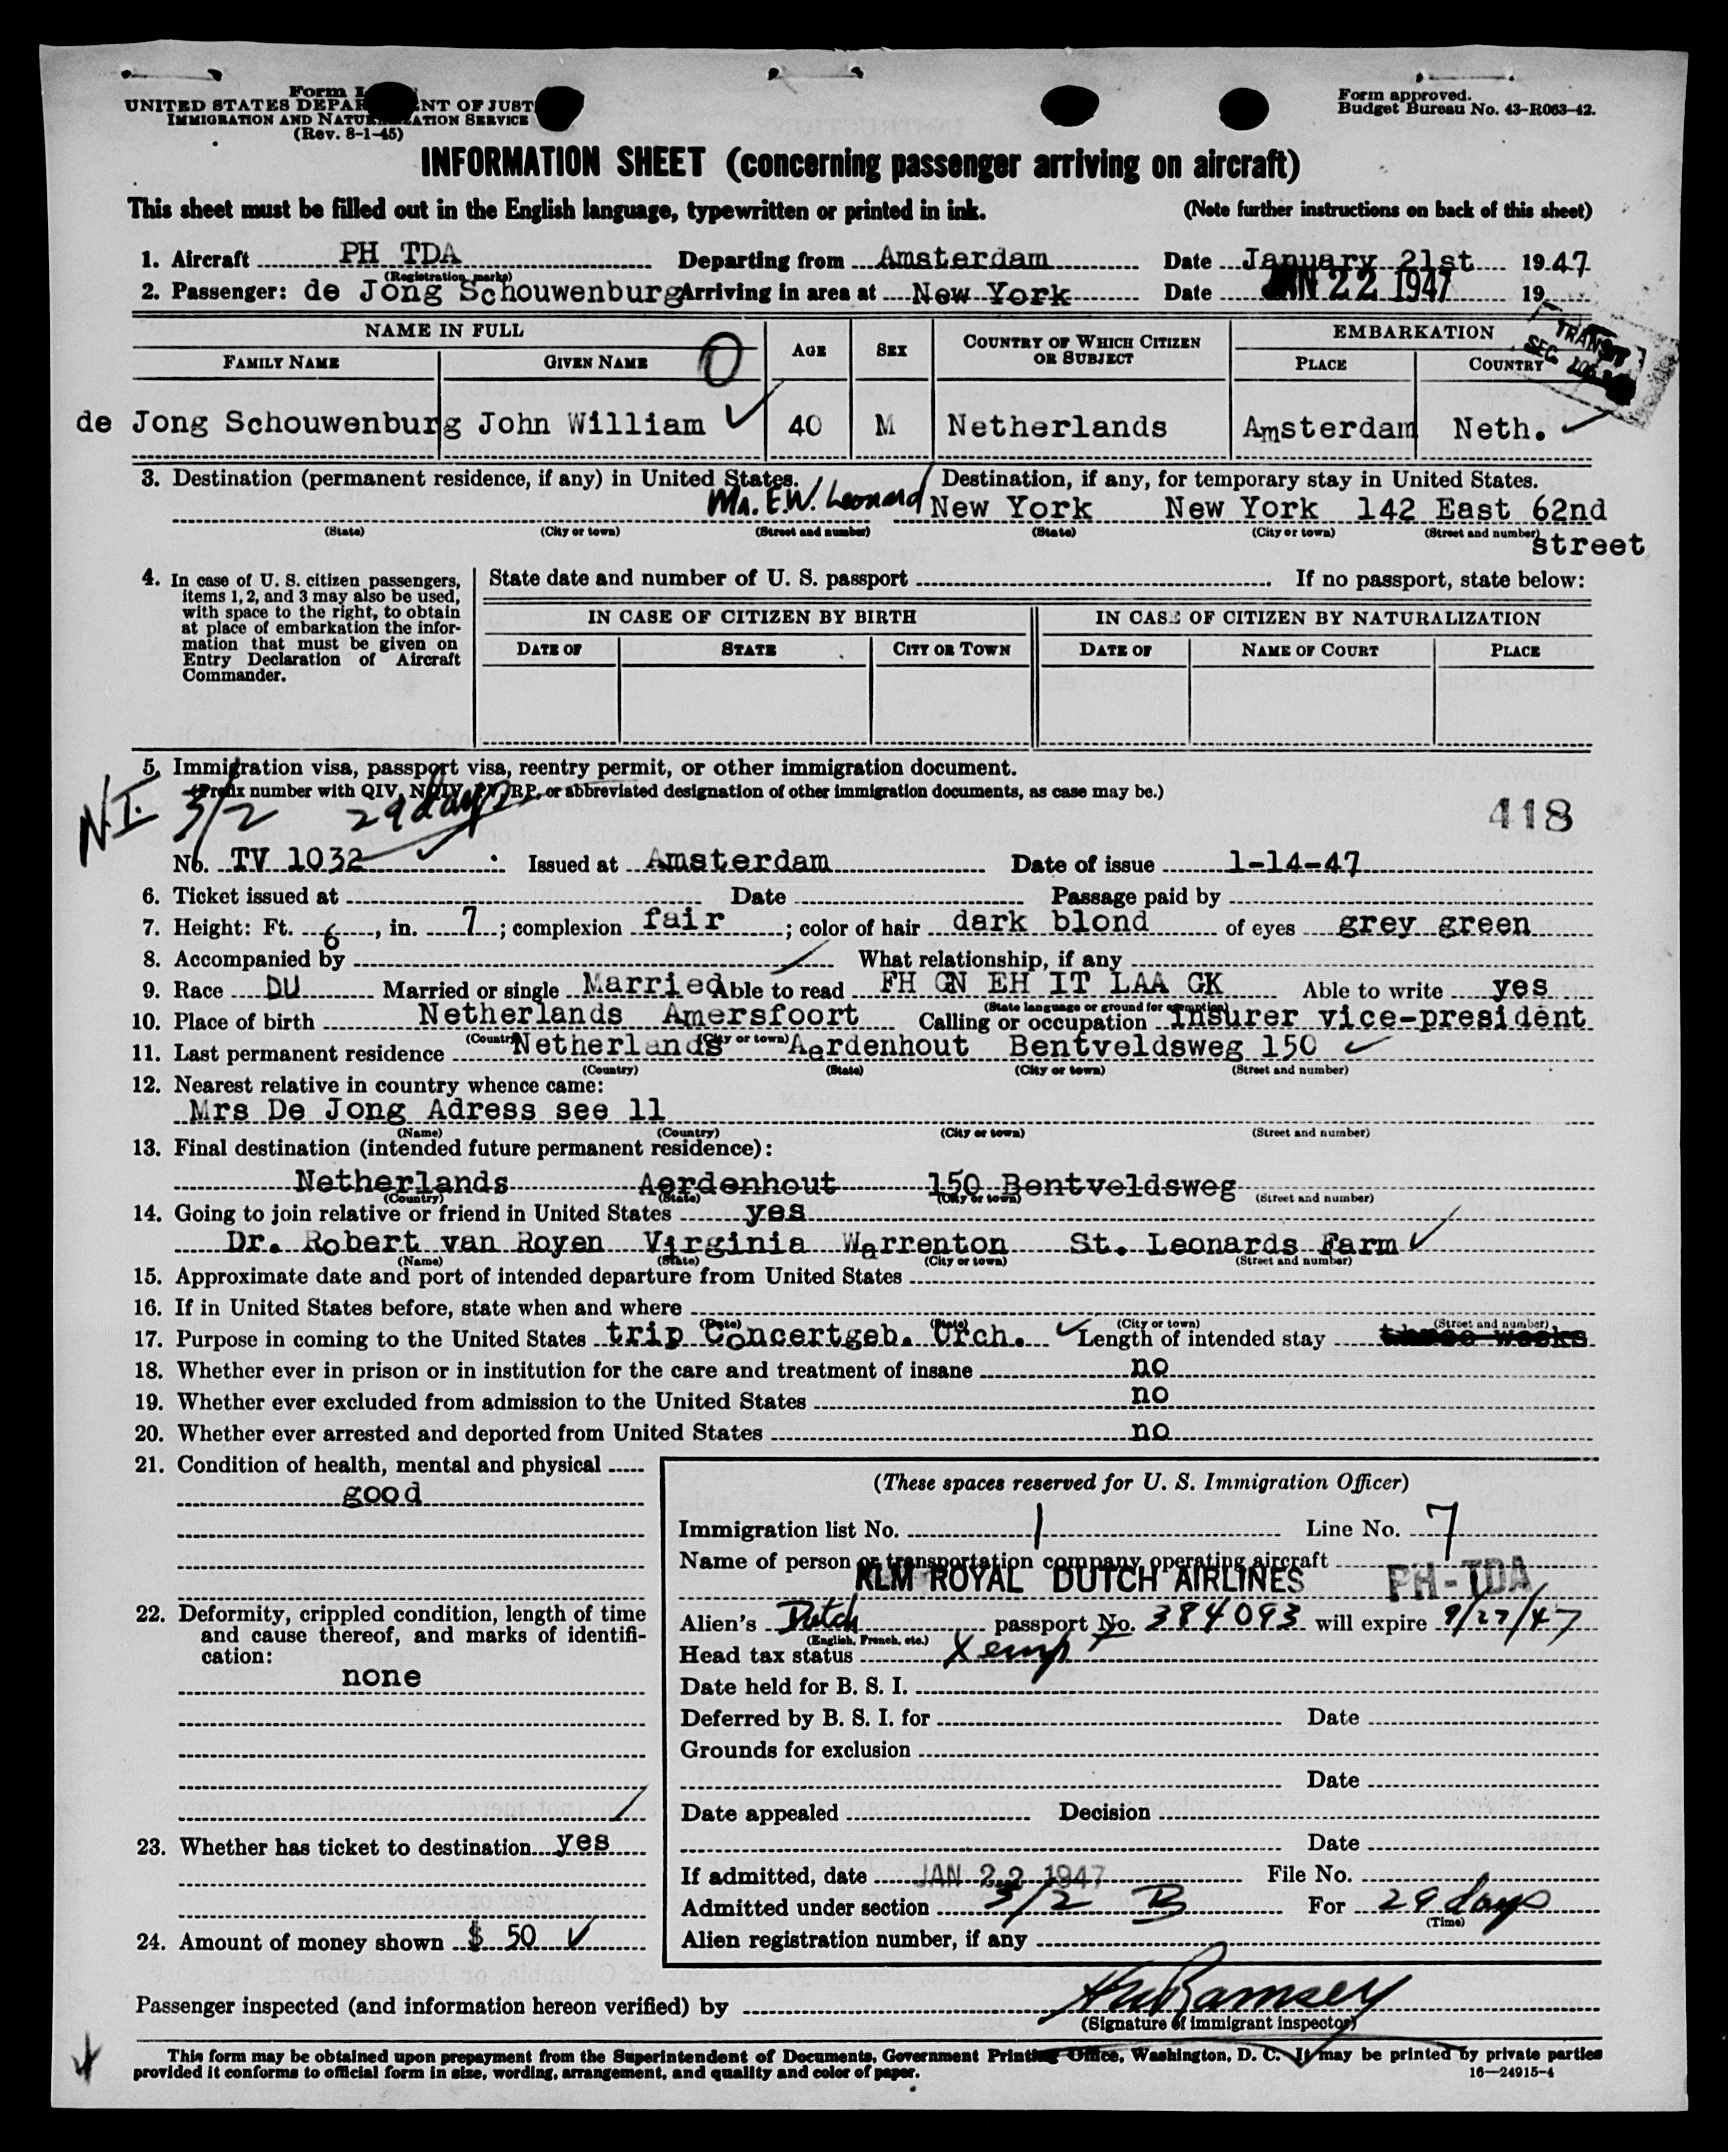 Form I
UNITED STATES DEPAR NT OF JUST
IMMIGRATION AND NATURALIZATION SERVICE
(Rev. 8-1-45)
Form approved.
Budget Bureau No. 43-R063-42.
INFORMATION SHEET (concerning passenger arriving on aircraft)
This sheet must be filled out in the English language, typewritten or printed in ink. (Note further instructions on back of this sheet)
1. Aircraft PH TDA Departing from Amsterdam Date January 21st 1947
(Registration marks)
2. Passenger: de Jong Schouwenburg Arriving in area at New York Date JAN 22 1947 19
TRANSIT
SEC
NAME IN FULL O AGE SEX COUNTRY OF WHICH CITIZEN OR SUBJECT EMBARKATION
FAMILY NAME GIVEN NAME PLACE COUNTRY
de Jong Schouwenburg John William 40 M Netherlands Amsterdam Neth.
3. Destination (permanent residence, if any) in United States. Destination, if any, for temporary stay in United States.
Mr. E.W. Leonard New York New York 142 East 62nd
(State) (City or town) (Street and number) (State) (City or town) (Street and number)
street
4. In case of U. S. citizen passengers, items 1, 2, and 3 may also be used, with space to the right, to obtain at place of embarkation the information that must be given on Entry Declaration of Aircraft Commander.
State date and number of U. S. passport If no passport, state below:
IN CASE OF CITIZEN BY BIRTH IN CASE OF CITIZEN BY NATURALIZATION
DATE OF STATE CITY OR TOWN DATE OF NAME OF COURT PLACE
5. Immigration visa, passport visa, reentry permit, or other immigration document.
(Prefix number with QIV, NQIV, PV, RP, or abbreviated designation of other immigration documents, as case may be.)
N.I. 3/2 29 days 418
No. TV 1032 Issued at Amsterdam Date of issue 1-14-47
6. Ticket issued at Date Passage paid by
7. Height: Ft. 6, in. 7; complexion fair; color of hair dark blond of eyes grey green
8. Accompanied by What relationship, if any
9. Race DU Married or single Married Able to read FH GN EH IT LAA GK Able to write yes
(State language or ground for exemption)
10. Place of birth Netherlands Amersfoort Calling or occupation insurer vice-president
(Country) (City or town)
11. Last permanent residence Netherlands Aerdenhout Bentveldsweg 150
(Country) (State) (City or town) (Street and number)
12. Nearest relative in country whence came:
Mrs De Jong Adress see 11
(Name) (Country) (City or town) (Street and number)
13. Final destination (intended future permanent residence):
Netherlands Aerdenhout 150 Bentveldsweg
(Country) (State) (City or town) (Street and number)
14. Going to join relative or friend in United States yes
Dr. Robert van Royen Virginia Warrenton St. Leonards Farm
(Name) (State) (City or town) (Street and number)
15. Approximate date and port of intended departure from United States
16. If in United States before, state when and where
(Date) (State) (City or town) (Street and number)
17. Purpose in coming to the United States trip Concertgeb. Orch. Length of intended stay three weeks
18. Whether ever in prison or in institution for the care and treatment of insane no
19. Whether ever excluded from admission to the United States no
20. Whether ever arrested and deported from United States no
21. Condition of health, mental and physical
good
22. Deformity, crippled condition, length of time and cause thereof, and marks of identification:
none
23. Whether has ticket to destination yes
24. Amount of money shown $ 50
(These spaces reserved for U. S. Immigration Officer)
Immigration list No. 1 Line No. 7
Name of person or transportation company operating aircraft
KLM ROYAL DUTCH AIRLINES PH-TDA
Alien's Dutch passport No. 384093 will expire 9/27/47
(English, French, etc.)
Head tax status Xempt
Date held for B. S. I.
Deferred by B. S. I. for Date
Grounds for exclusion
Date
Date appealed Decision
Date
If admitted, date JAN 22 1947 File No.
Admitted under section 3/2 B For 29 days
(Time)
Alien registration number, if any
Passenger inspected (and information hereon verified) by Ramsey
(Signature of immigrant inspector)
This form may be obtained upon prepayment from the Superintendent of Documents, Government Printing Office, Washington, D. C. It may be printed by private parties
provided it conforms to official form in size, wording, arrangement, and quality and color of paper. 16—24915-4